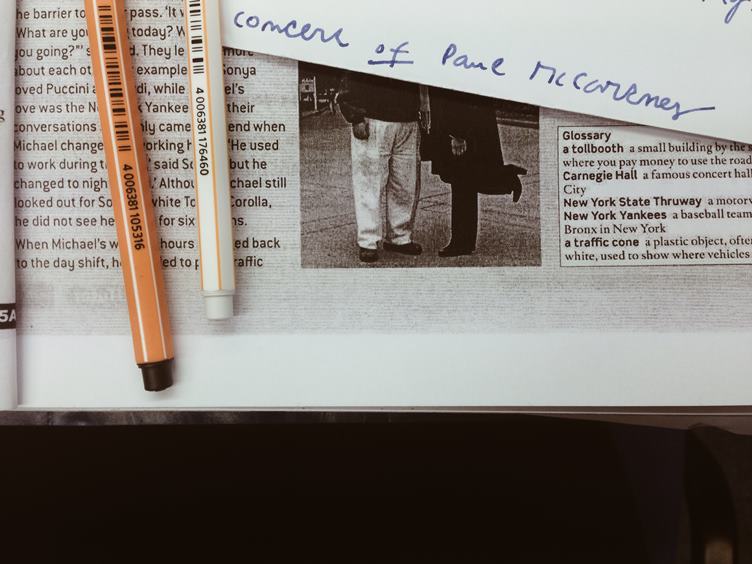 concert of Paul McCartney
he barrier to pass. 'It
What are you today? W
you going?"' They le more
about each ot example Sonya
oved Puccini di, while el's
ove was the Ne Yankee their
conversations only came end when
Michael change orking 'He used
to work during t said So but he
changed to nigh .' Althou chael still
looked out for So white To Corolla,
he did not see he for six ns.
When Michael's w hours ed back
to the day shift, h ed to p raffic
4 006381 105316
4 006381 176460
Glossary
a tollbooth a small building by the s
where you pay money to use the road
Carnegie Hall a famous concert hall
City
New York State Thruway a motorw
New York Yankees a baseball team
Bronx in New York
a traffic cone a plastic object, ofte
white, used to show where vehicles
5A